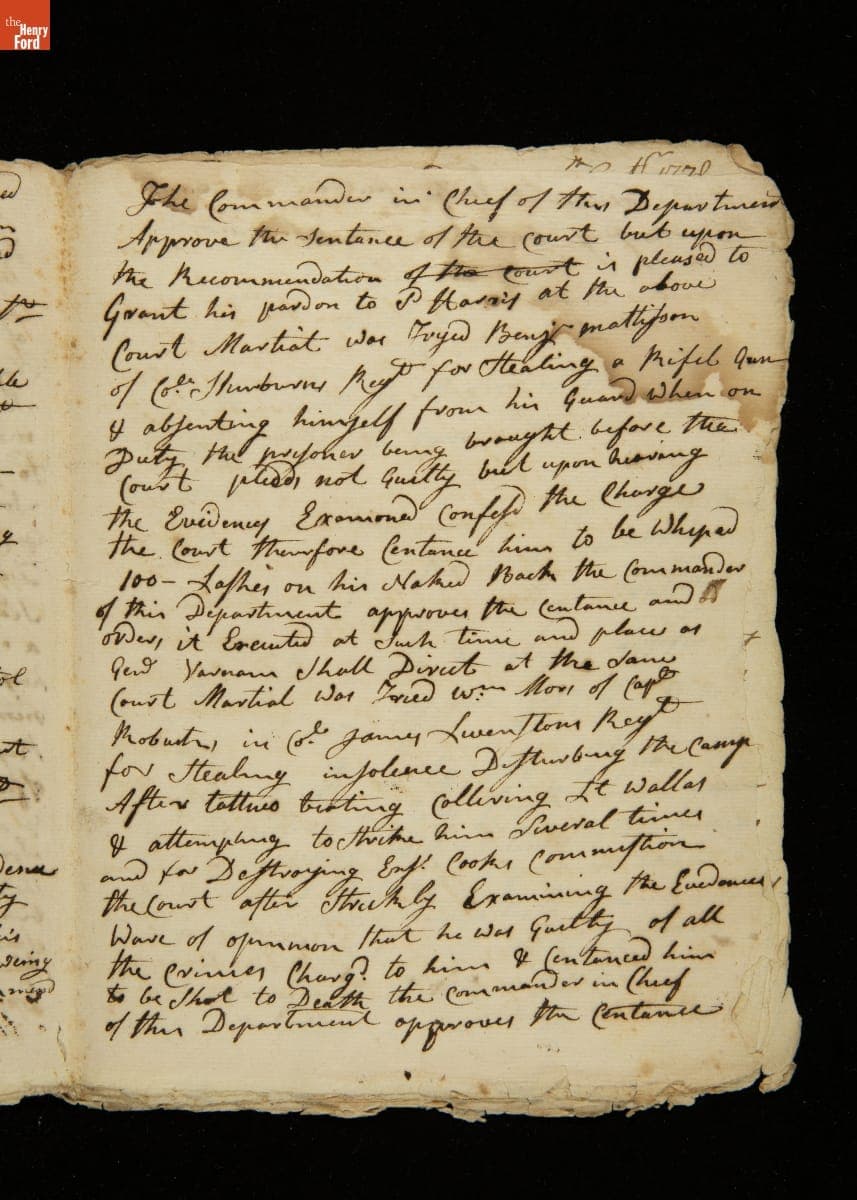 the
Henry
Ford
1778
The Commander in Chief of this Department
Approve the Sentance of the court but upon
the Recommendation of the court is pleased to
Grant his pardon to P Harris at the above
Court Martial was Tryed Benjn mattisson
of Colo Shurburns Regt for Stealing a Rifel Gun
& absenting himself from his Guard when on
Duty the prisoner being brought before the
Court pleads not Guilty but upon hearing
the Evidences Examoned confesd the Charge
the Court therefore Centance him to be Whiped
100 - Lashes on his Naked Back the Commander
of this Department approves the Centance and
orders it Executed at Such time and place as
Genl Varnam Shall Direct at the Same
Court Martial was Tried Wm Mors of Capt
in Colo James Livenstons Regt
for Stealing insolence Disturbing the Camp
After tattuo beating Collering Lt Wallas
& attempting to Strike him Several times
and for Destroying Ensn Cooks Commistion
the Court after Strickly Examining the Evedences
Ware of opinmon that he was Guilty of all
the Crimes Chargd to him & Centanced him
to be Shot to Death the Commander in Chief
of this Department approves the Centance